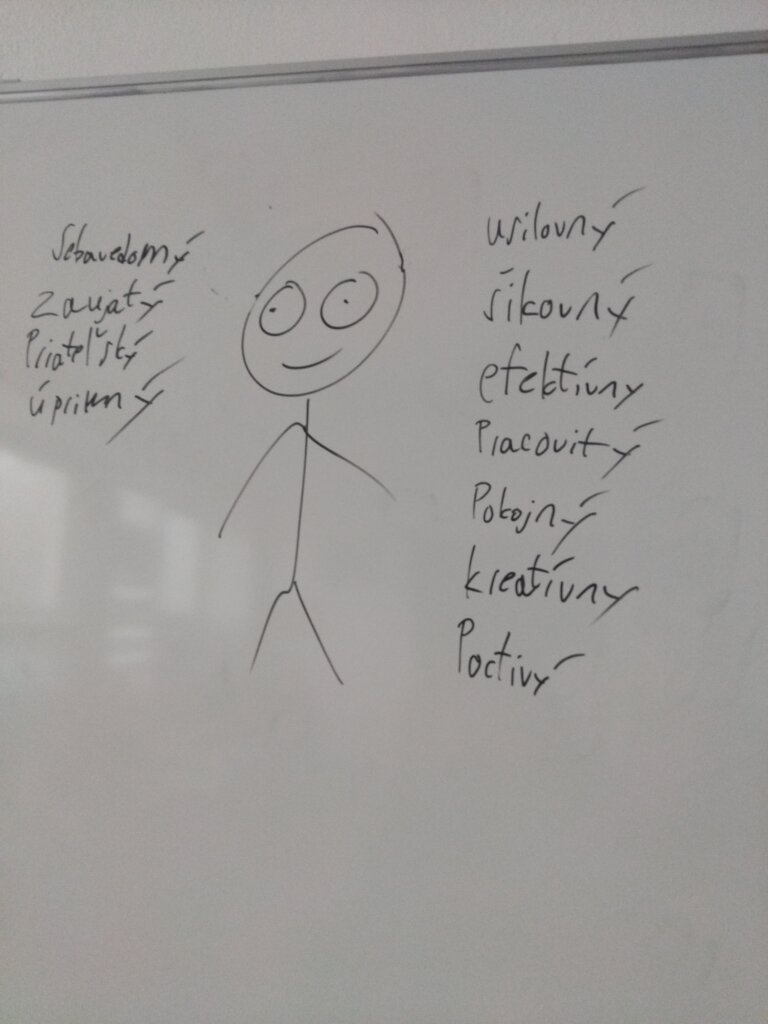 Sebavedomý
zaujatý
Priateľský
úprimný
usilovný
šikovný
efektívny
Pracovitý
Pokojný
kreatívny
Poctivý